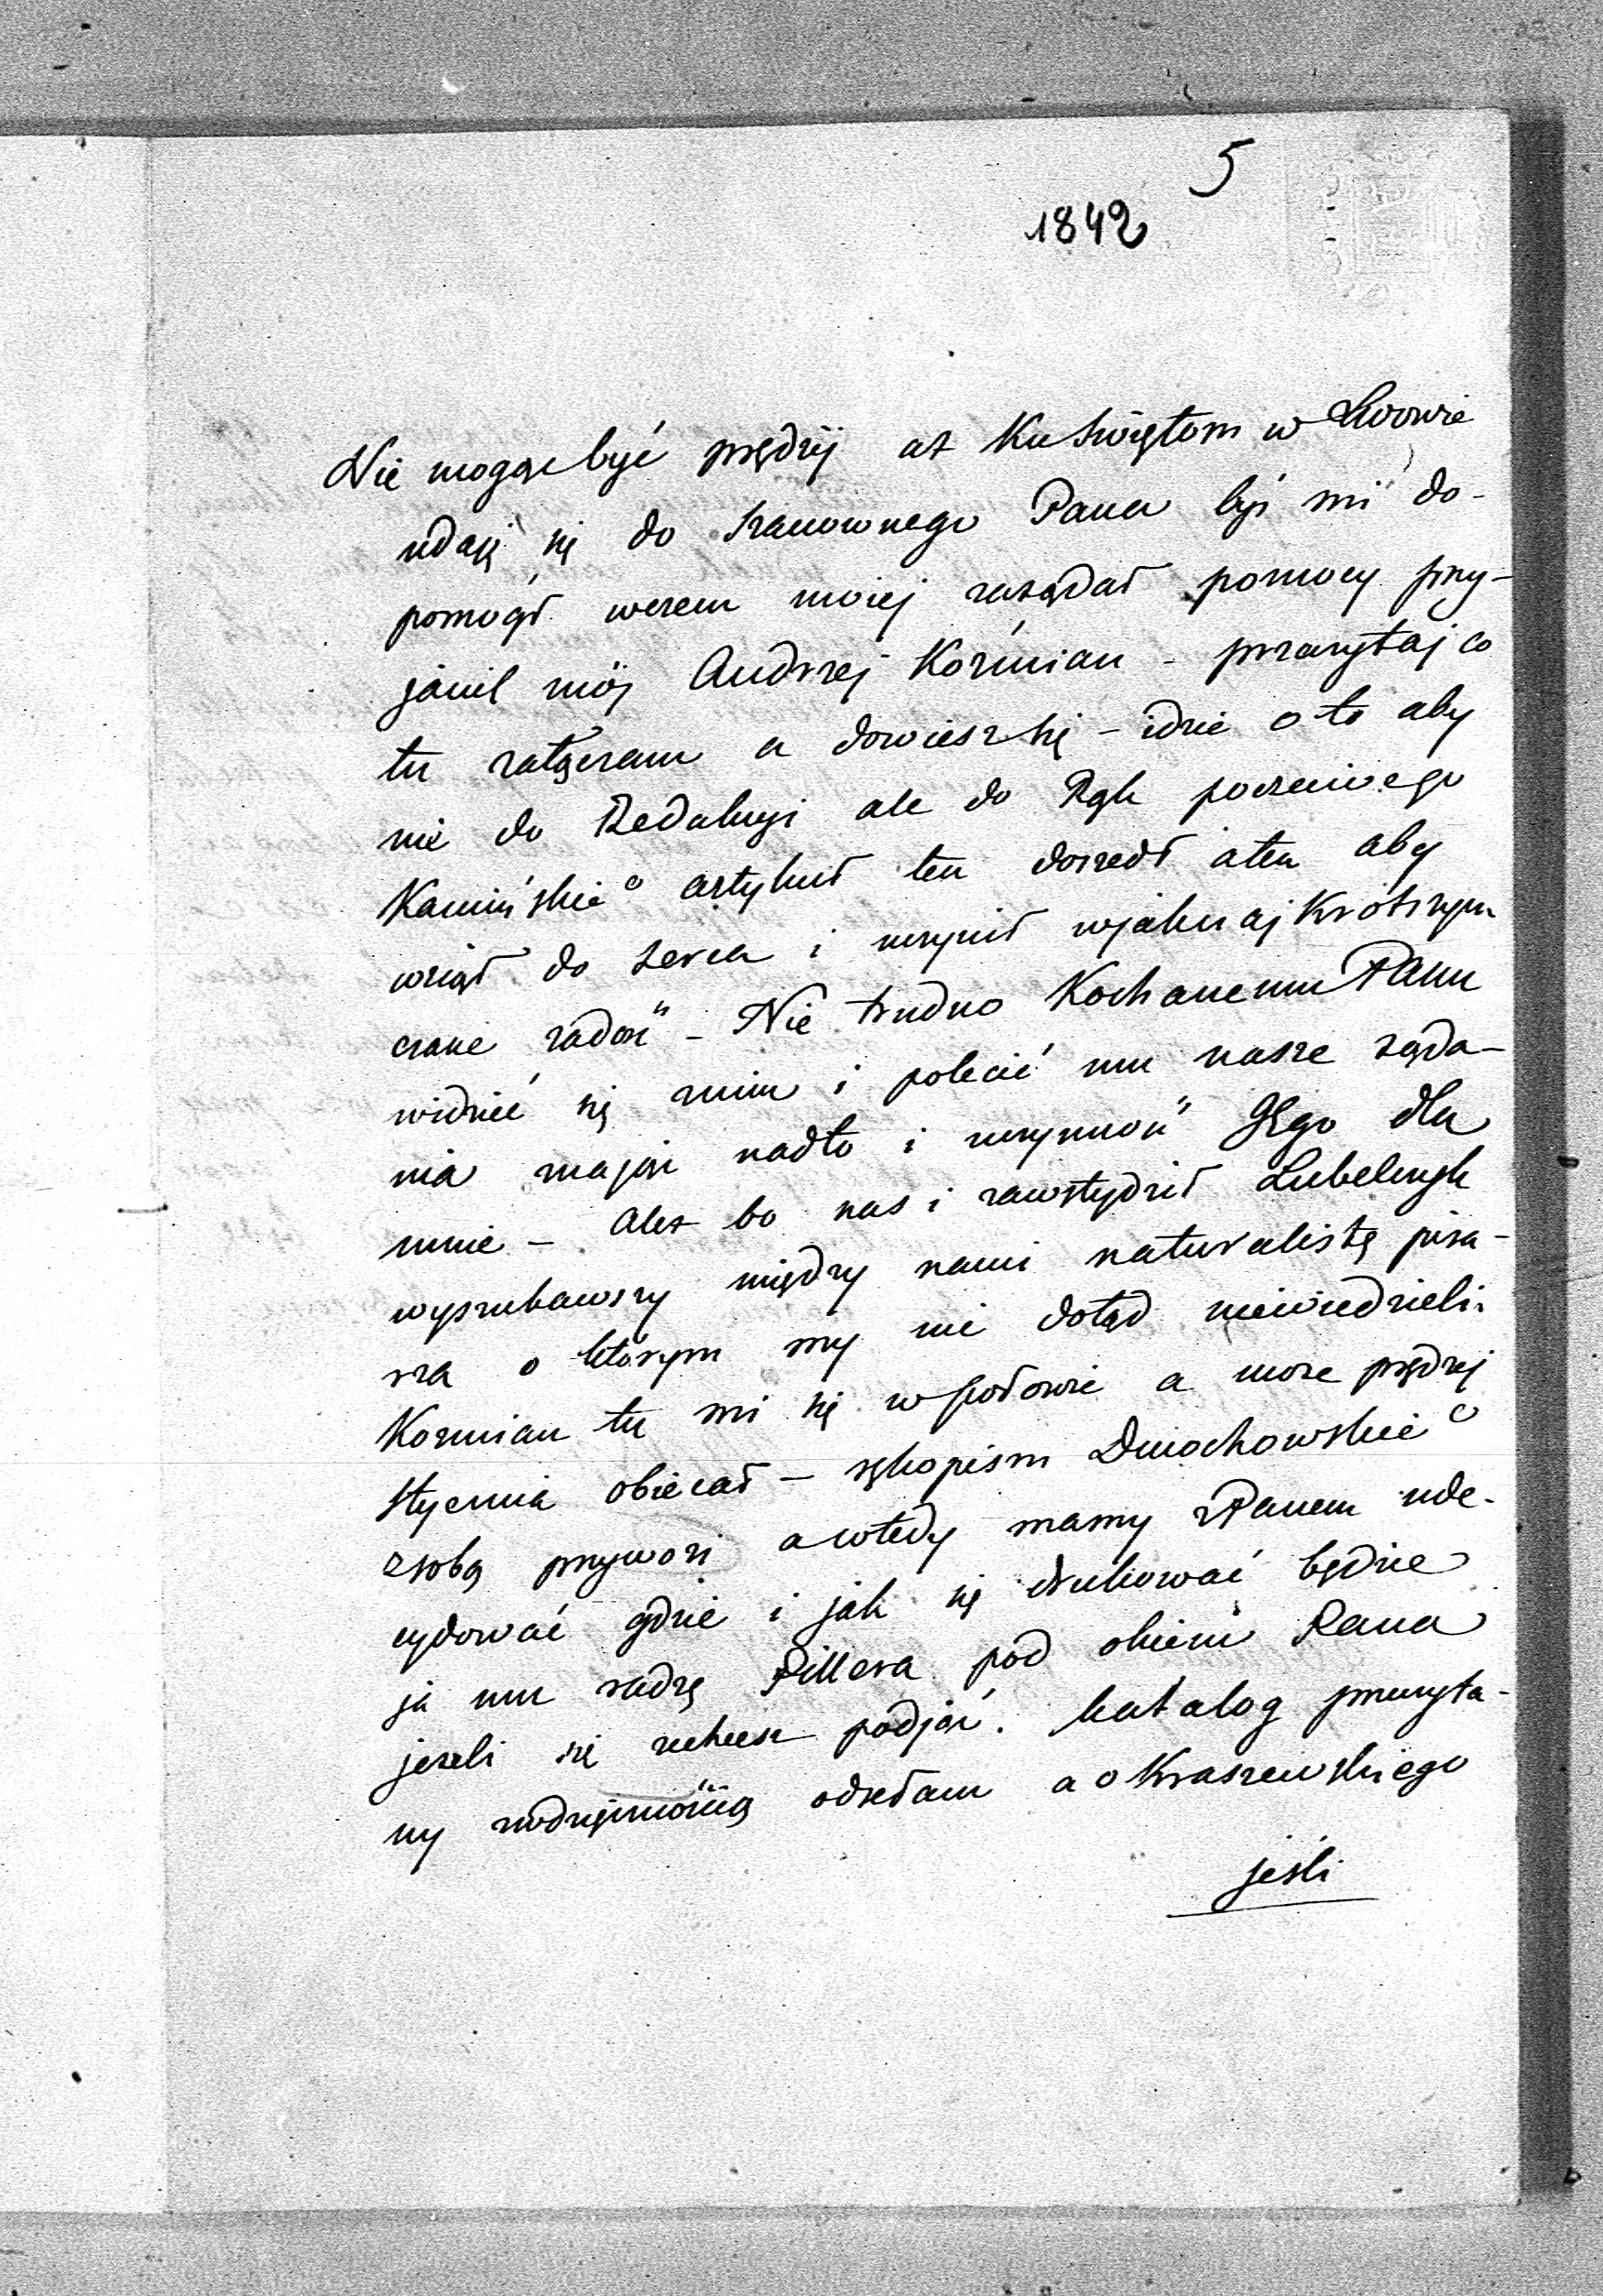 5
1842
Nie mogąc być prędzej aż Ku Świętom w Lwowie
udaję się do Szanownego Pana byś mi do-
pomógł wczem moiej zażądał pomocy przy-
jaciel mój Andrzej Koźmian - przeczytaj co
tu załączam a dowiesz się - idzie o to aby
nie do Redakcyi ale do Rąk poczciwego
Kamińskieº artykuł ten doszedł aten aby
wziął do serca i uczynił wjaknajkrótszym
czasie zadość - Nie trudno Kochanemu Panu
widzieć się znim i polecić mu nasze żąda-
nia majać nadto i uczynność Jego dla
mnie - Ależ bo nas i zawstydził Lubelczyk
wyszukawszy między nami naturalistę pisa-
rza o którym my nie dotąd niewiedzieli.
Kozmian tu mi się w połowie a może prędzej
Stycznia obiecał - rękopism Dmochowskieº
zsobą przywozi a wtedy mamy zPanem zde-
cydować gdzie i jak się drukować będzie
ja mu radzę Pillera pod okiem Pana
jezeli się zechcesz podjąć. katalog przeczyta-
ny zwdzięcznością odsełam a o Kraszewskiego
jeśli